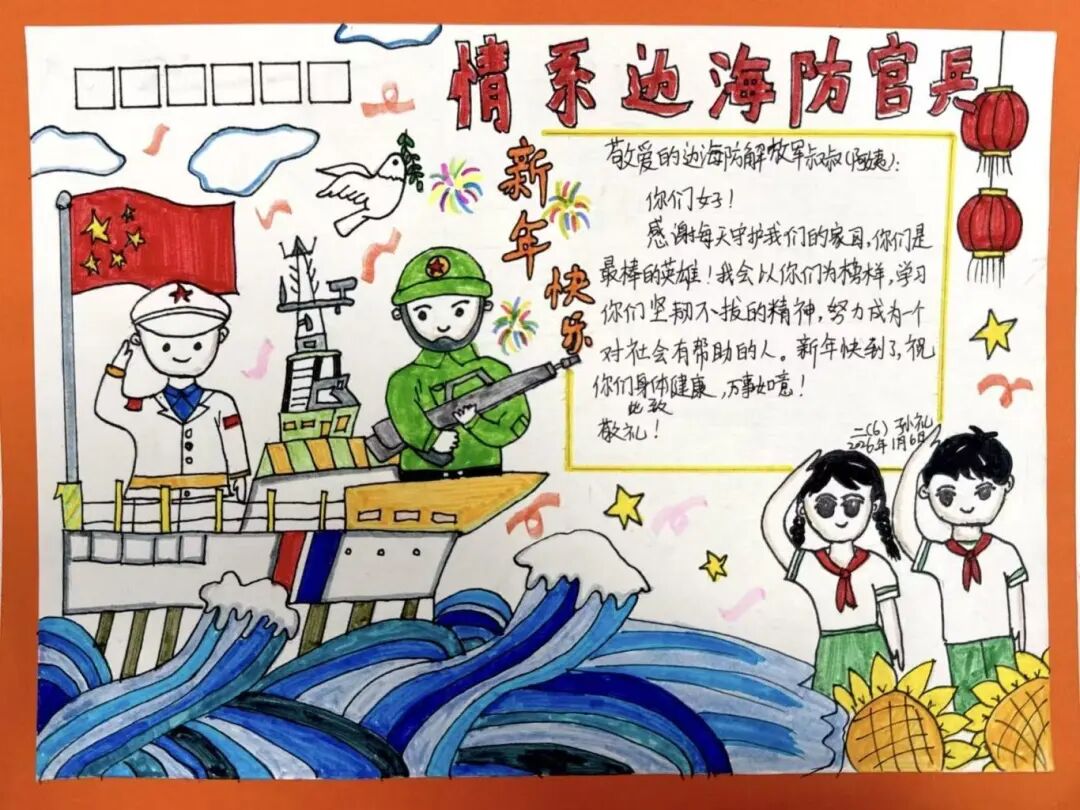 情系边海防官兵
新年快乐
敬爱的边海防解放军叔叔(阿姨):
你们好!
感谢每天守护我们的家园,你们是
最棒的英雄!我会以你们为榜样,学习
你们坚韧不拔的精神,努力成为一个
对社会有帮助的人。新年快到了,祝
你们身体健康,万事如意!
此致
敬礼!
二(6) 孙礼
2026年1月6日